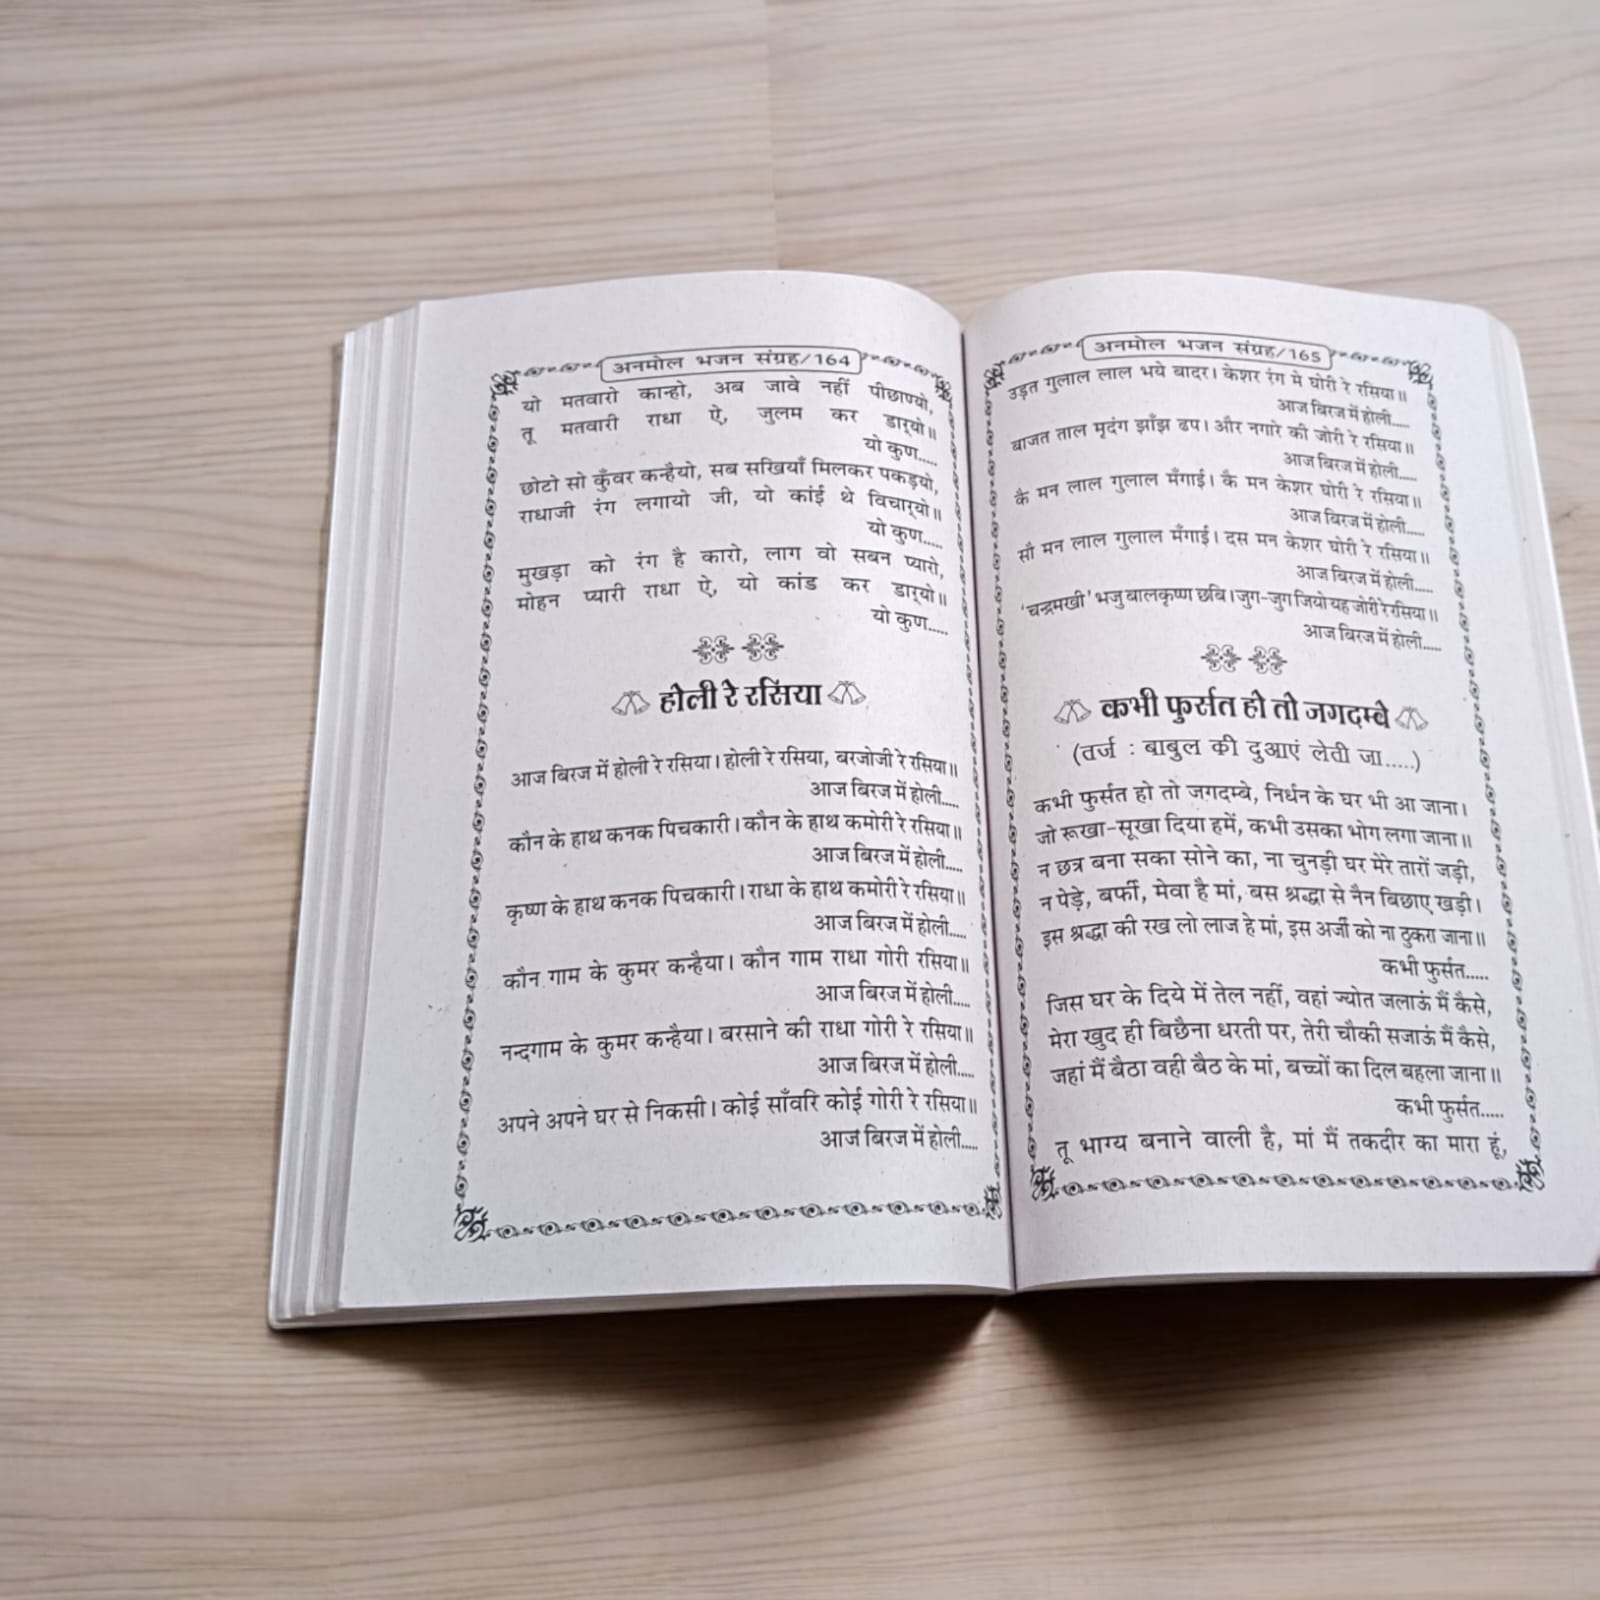 अनमोल भजन संग्रह/164
यो मतवारो कान्हो, अब जावे नहीं पीछाण्यो,
तू मतवारी राधा ऐ, जुलम कर डार्‌यो॥
यो कुण.....
छोटो सो कुँवर कन्हैयो, सब सखियाँ मिलकर पकड़यो,
राधाजी रंग लगायो जी, यो कांई थे विचार्‌यो॥
यो कुण.....
मुखड़ा को रंग है कारो, लाग वो सबन प्यारो,
मोहन प्यारी राधा ऐ, यो कांड कर डार्‌यो॥
यो कुण.....
होली रे रसिया
आज बिरज में होली रे रसिया। होली रे रसिया, बरजोजी रे रसिया॥
आज बिरज में होली.....
कौन के हाथ कनक पिचकारी। कौन के हाथ कमोरी रे रसिया॥
आज बिरज में होली.....
कृष्ण के हाथ कनक पिचकारी। राधा के हाथ कमोरी रे रसिया॥
आज बिरज में होली.....
कौन गाम के कुमर कन्हैया। कौन गाम राधा गोरी रसिया॥
आज बिरज में होली.....
नन्दगाम के कुमर कन्हैया। बरसाने की राधा गोरी रे रसिया॥
आज बिरज में होली.....
अपने अपने घर से निकसी। कोई साँवरि कोई गोरी रे रसिया॥
आज बिरज में होली.....
अनमोल भजन संग्रह/165
उड़त गुलाल लाल भये बादर। केशर रंग मे घोरी रे रसिया॥
आज बिरज में होली.....
बाजत ताल मृदंग झाँझ ढप। और नगारे की जोरी रे रसिया॥
आज बिरज में होली.....
कै मन लाल गुलाल मँगाई। कै मन केशर घोरी रे रसिया॥
आज बिरज में होली.....
सौ मन लाल गुलाल मँगाई। दस मन केशर घोरी रे रसिया॥
आज बिरज में होली.....
'चन्द्रमखी' भजु बालकृष्ण छबि। जुग-जुग जियो यह जोरी रे रसिया॥
आज बिरज में होली.....
कभी फुर्सत हो तो जगदम्बे
(तर्ज : बाबुल की दुआएं लेती जा.....)
कभी फुर्सत हो तो जगदम्बे, निर्धन के घर भी आ जाना।
जो रूखा-सूखा दिया हमें, कभी उसका भोग लगा जाना॥
न छत्र बना सका सोने का, ना चुनड़ी घर मेरे तारों जड़ी,
न पेड़े, बर्फी, मेवा है मां, बस श्रद्धा से नैन बिछाए खड़ी।
इस श्रद्धा की रख लो लाज हे मां, इस अर्जी को ना ठुकरा जाना॥
कभी फुर्सत.....
जिस घर के दिये में तेल नहीं, वहां ज्योत जलाऊं मैं कैसे,
मेरा खुद ही बिछैना धरती पर, तेरी चौकी सजाऊं मैं कैसे,
जहां मैं बैठा वही बैठ के मां, बच्चों का दिल बहला जाना॥
कभी फुर्सत.....
तू भाग्य बनाने वाली है, मां मैं तकदीर का मारा हूं,